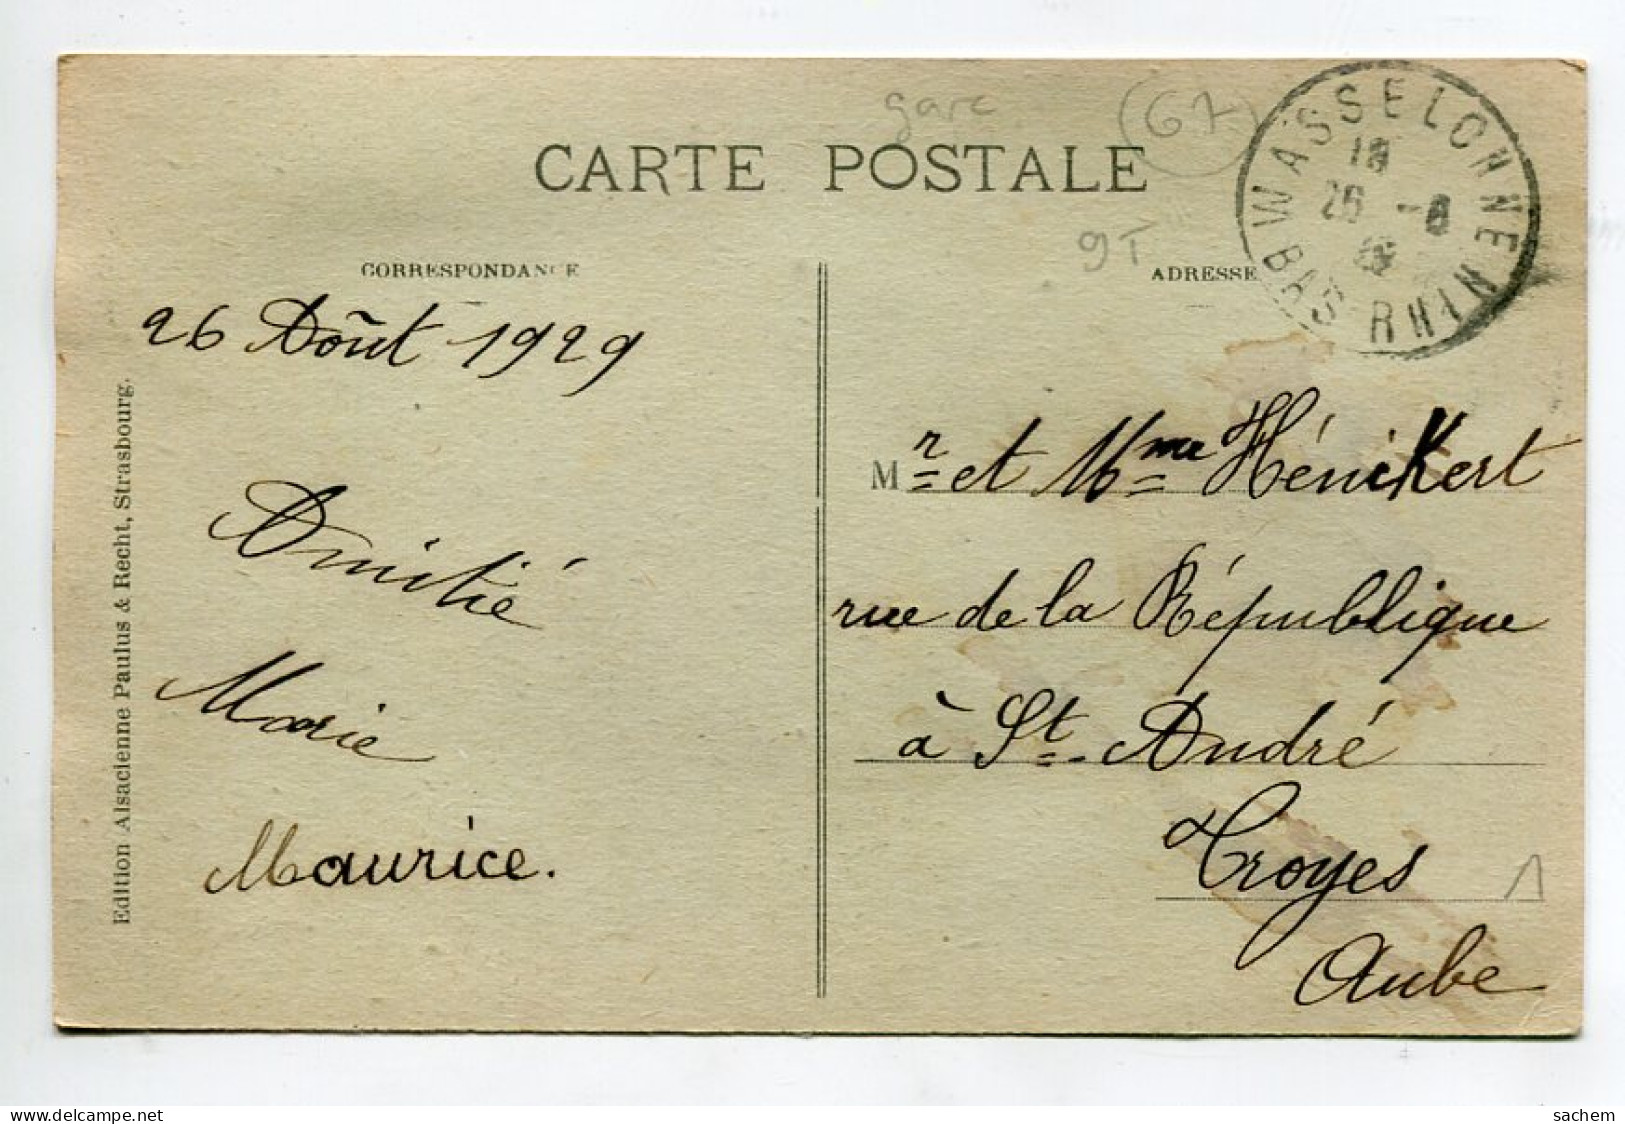 gare
(67)
CARTE POSTALE
9T
WASSELONNE
18
26 -8
29
BAS RHIN
CORRESPONDANCE
ADRESSE
26 Août 1929
Amitié
Marie
Maurice.
Edition Alsacienne Paulus & Recht, Strasbourg.
Mr et Mme Hénikert
rue de la République
à St-André
Troyes
1
Aube
www.delcampe.net
sachem